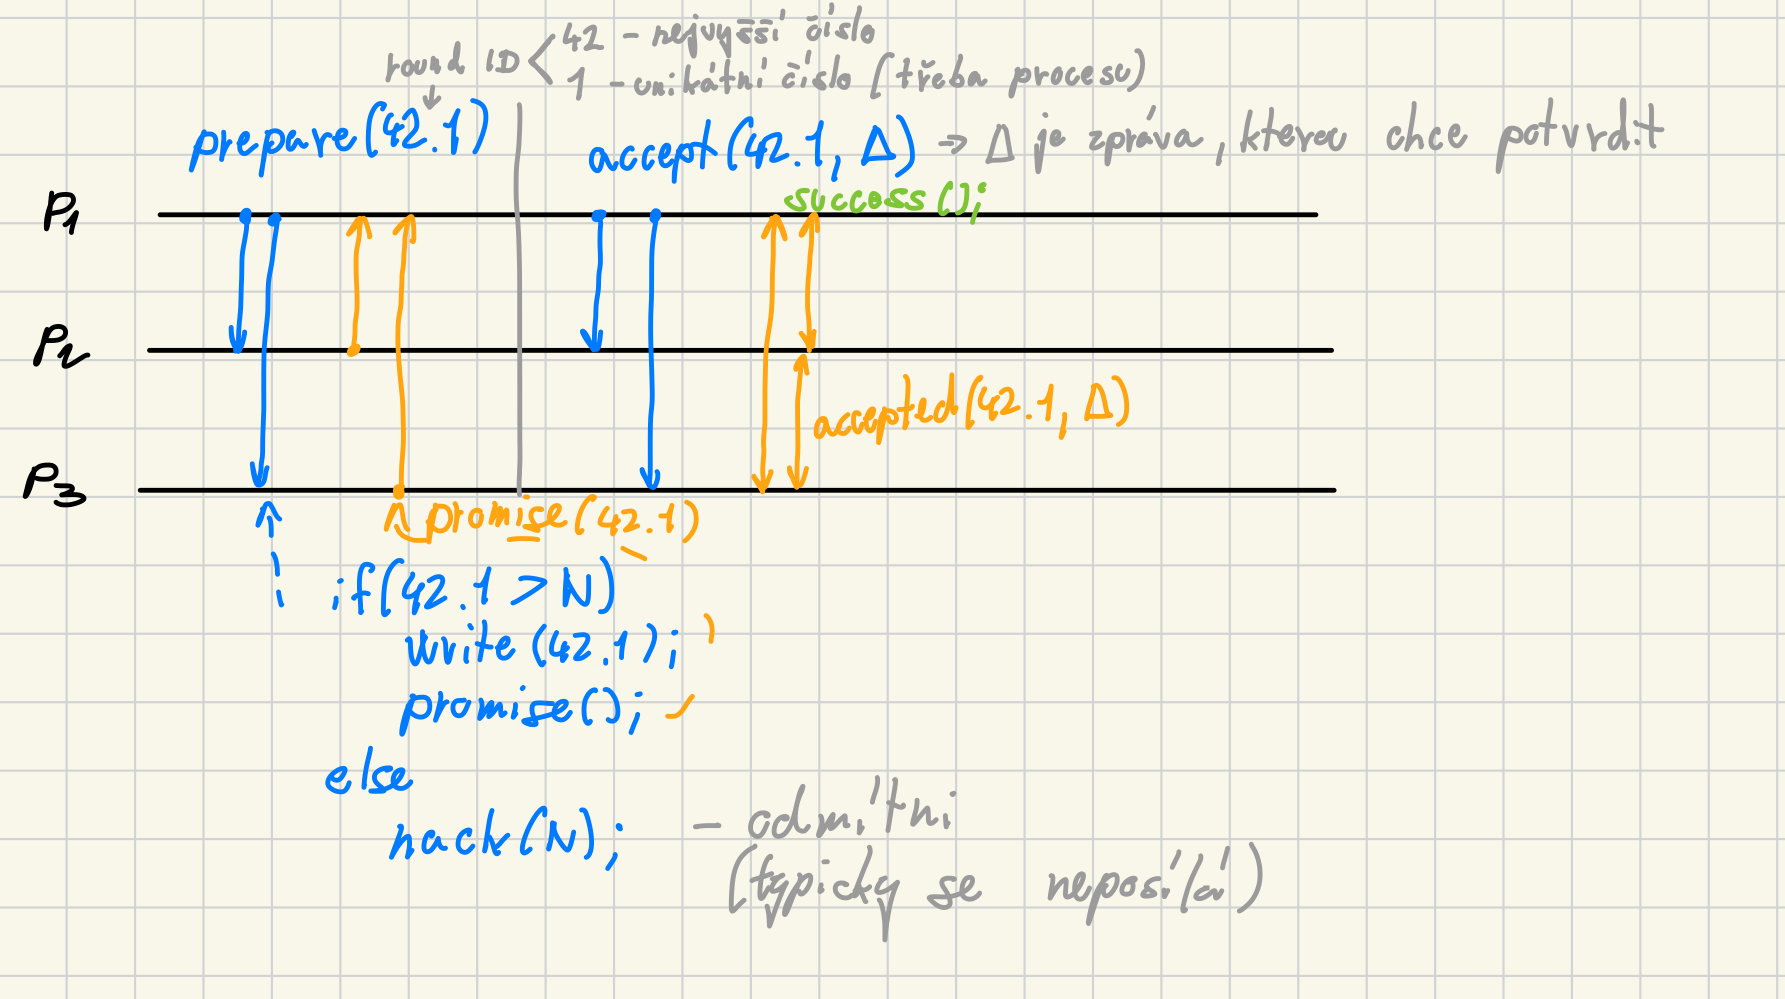 round ID < 42 - nejvyšší číslo
1 - unikátní číslo (třeba procesu)
prepare(42.1)
accept(42.1, Δ) → Δ je zpráva, kterou chce potvrdit
success();
P1
P2
accepted(42.1, Δ)
P3
promise(42.1)
if(42.1 > N)
write(42.1);
promise();
else
nack(N); - odmítni
(typicky se neposílá)